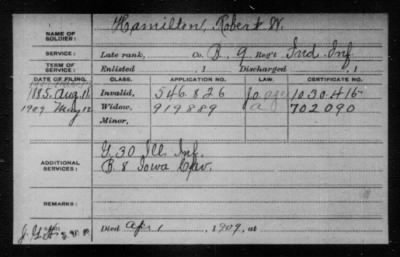 NAME OF SOLDIER: Hamilton, Robert W.
SERVICE: Late rank, Co. B, 9 Reg't Ind Inf
TERM OF SERVICE: Enlisted , 1 Discharged , 1
DATE OF FILING. CLASS. APPLICATION NO. LAW. CERTIFICATE NO.
1885. Aug 11 Invalid, 546826 1030415
1909 May 12 Widow, 919889 702090
Minor,
ADDITIONAL SERVICES: G 30 Ill. Inf.
B. 8 Iowa Cav.
REMARKS:
Died Apr , 1909, at